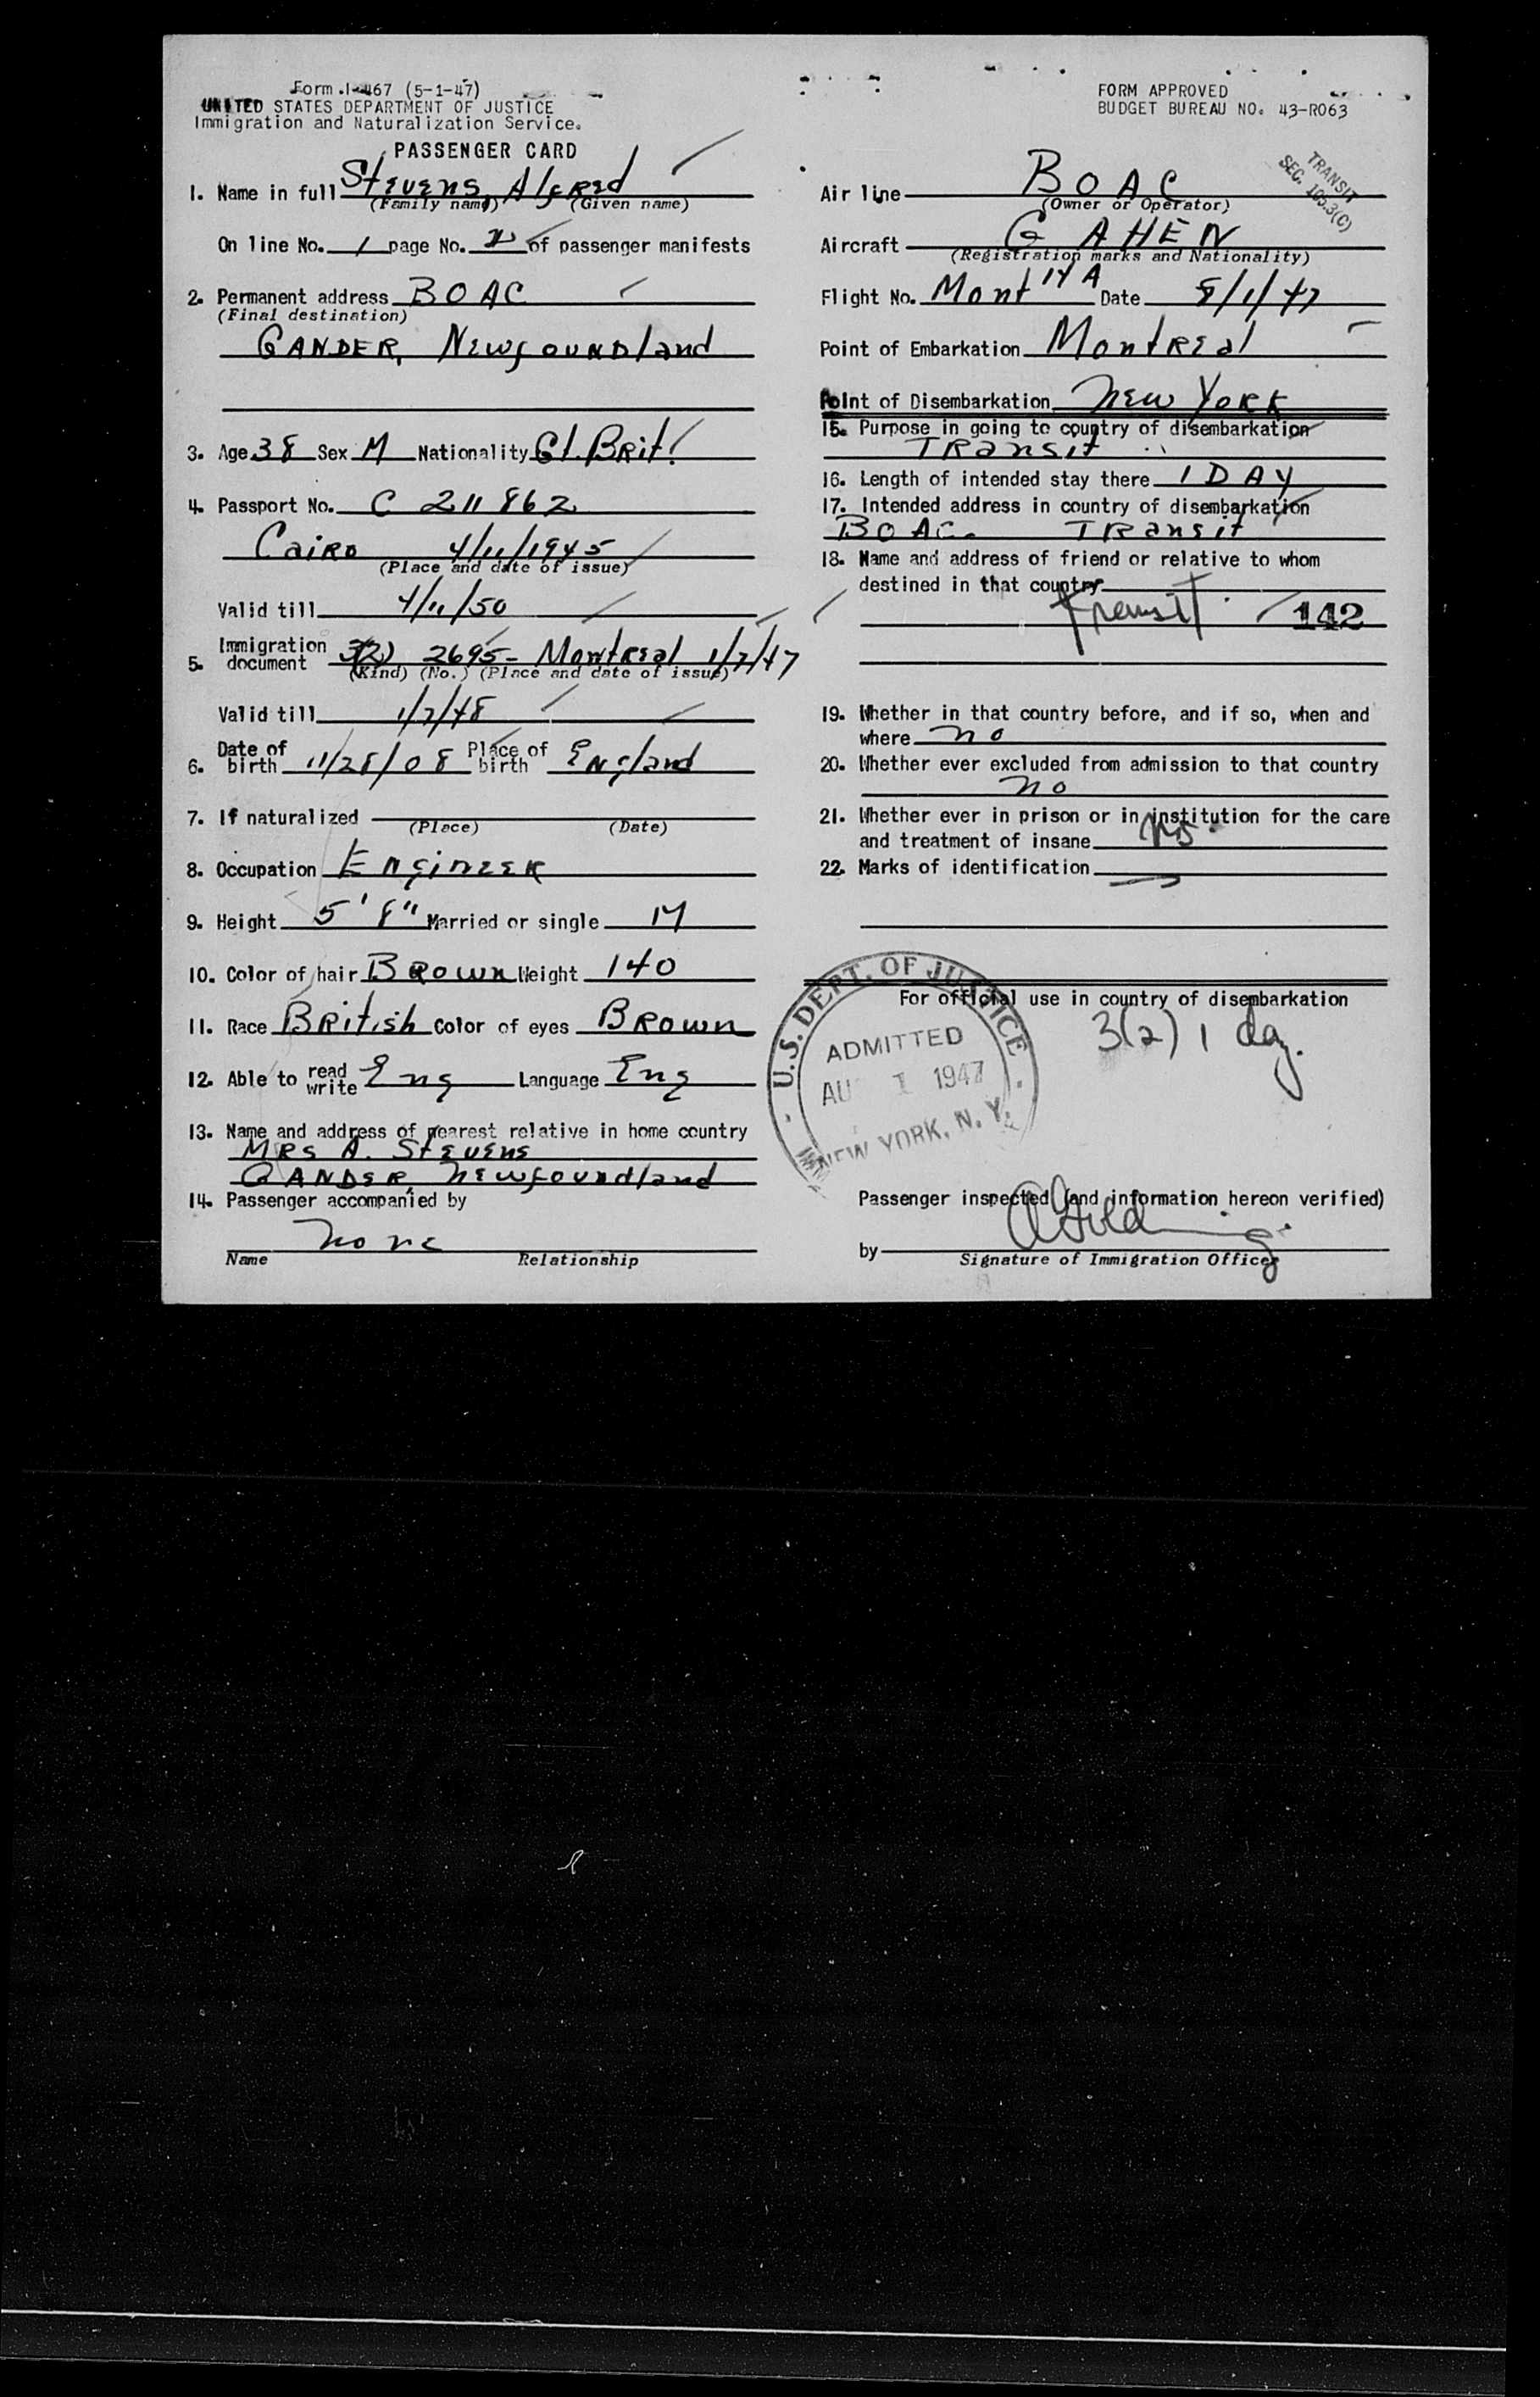 Form I-467 (5-1-47)
UNITED STATES DEPARTMENT OF JUSTICE
Immigration and Naturalization Service.
PASSENGER CARD
1. Name in full Stevens, Alfred
(Family name) (Given name)
On line No. 1 page No. 2 of passenger manifests
2. Permanent address BOAC
(Final destination)
GANDER, Newfoundland
3. Age 38 Sex M Nationality Gt. Brit.
4. Passport No. C 211862
Cairo 4/11/1945
(Place and date of issue)
Valid till 4/11/50
5. Immigration document 3(2) 2695- Montreal 1/7/47
(Kind) (No.) (Place and date of issue)
Valid till 1/7/48
6. Date of birth 11/28/08 Place of birth England
7. If naturalized
(Place) (Date)
8. Occupation Engineer
9. Height 5' 8" Married or single M
10. Color of hair Brown Weight 140
11. Race British Color of eyes Brown
12. Able to read write Eng Language Eng
13. Name and address of nearest relative in home country
MRS A. Stevens
GANDER, Newfoundland
14. Passenger accompanied by
None
Name Relationship
FORM APPROVED
BUDGET BUREAU NO. 43-R063
TRANSIT
SEC. 105.3(C)
Air line BOAC
(Owner or Operator)
Aircraft G AHEN
(Registration marks and Nationality)
Flight No. Mont 14 A Date 8/1/47
Point of Embarkation Montreal
Point of Disembarkation New York
15. Purpose in going to country of disembarkation
Transit
16. Length of intended stay there 1 DAY
17. Intended address in country of disembarkation
BOAC. Transit
18. Name and address of friend or relative to whom
destined in that country
Transit 142
19. Whether in that country before, and if so, when and
where no
20. Whether ever excluded from admission to that country
no
21. Whether ever in prison or in institution for the care
and treatment of insane no.
22. Marks of identification —
For official use in country of disembarkation
3(2) 1 day.
U.S. DEPT. OF JUSTICE
ADMITTED
AU 1 1947
NEW YORK, N. Y.
Passenger inspected (and information hereon verified)
by
Signature of Immigration Officer